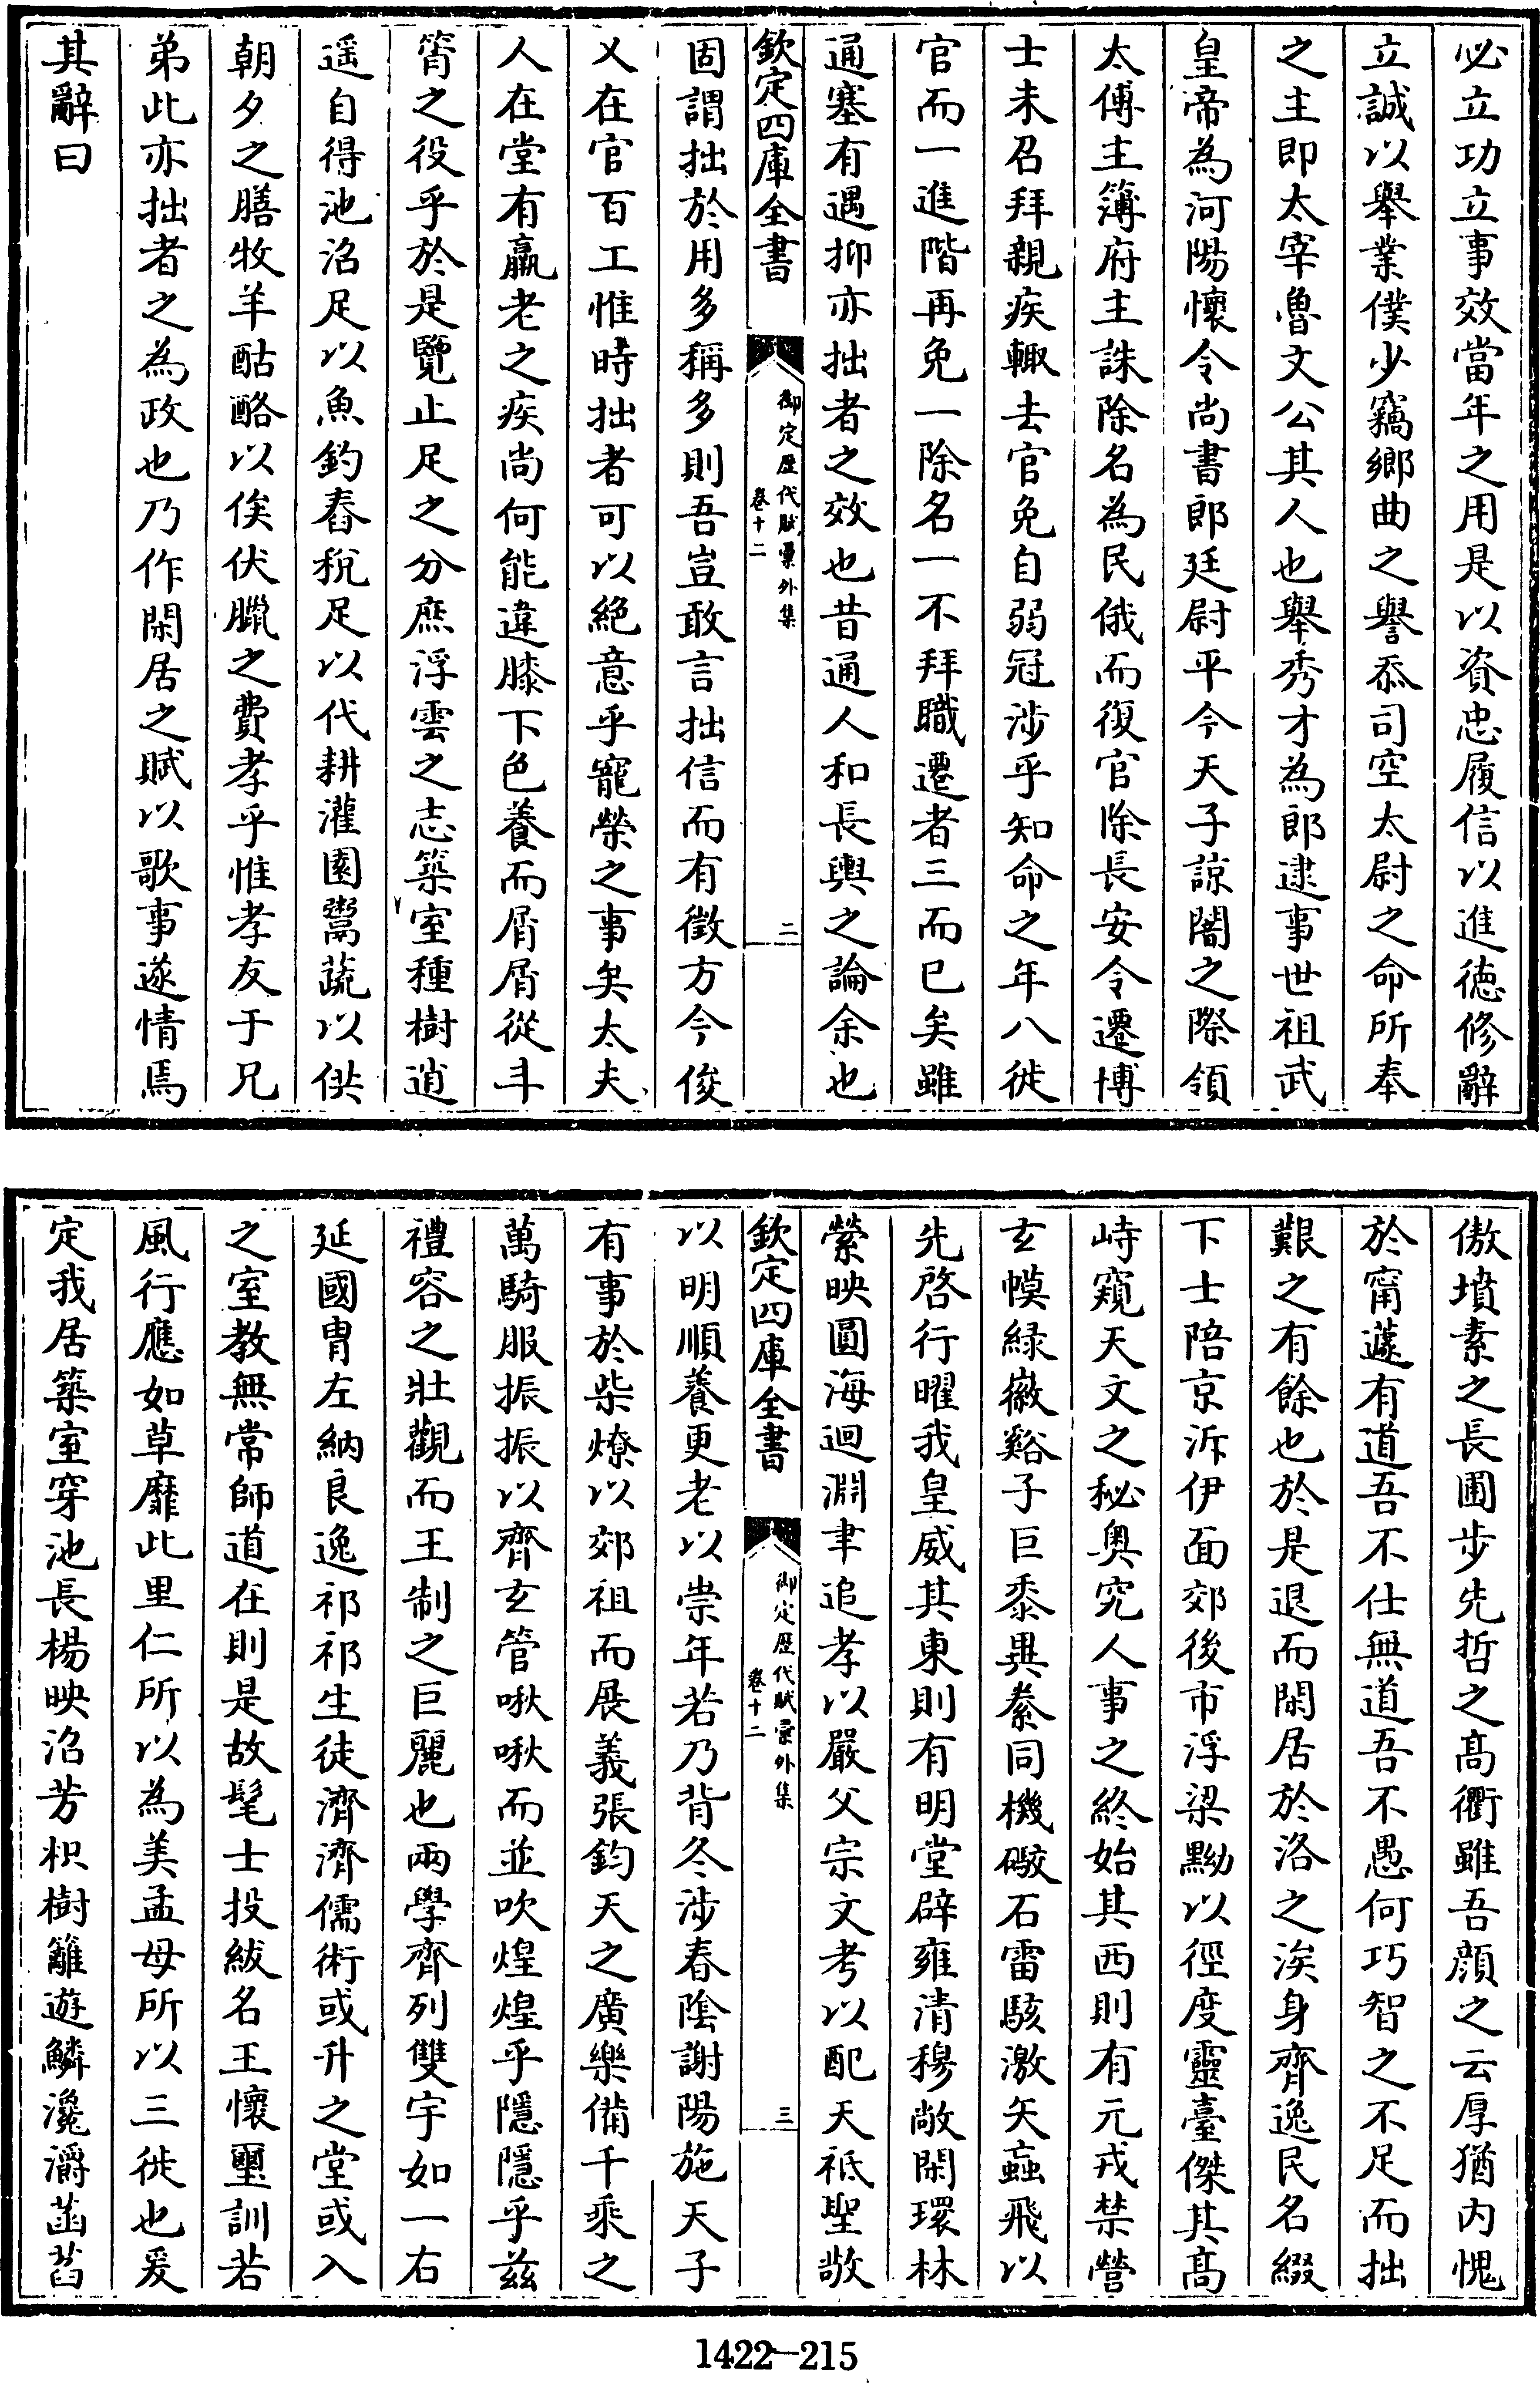 必立功立事效當年之用是以資忠履信以進德修辭
立誠以舉業僕少竊鄉曲之譽忝司空太尉之命所奉
之主即太宰魯文公其人也舉秀才為郎逮事世祖武
皇帝為河陽懷令尚書郎廷尉平今天子諒闇之際領
太傅主簿府主誅除名為民俄而復官除長安令遷博
士未召拜親疾輙去官免自弱冠涉乎知命之年八徙
官而一進階再免一除名一不拜職遷者三而已矣雖
通塞有遇抑亦拙者之效也昔通人和長輿之論余也
欽定四庫全書
御定歴代賦彚外集
卷十二
二
固謂拙於用多稱多則吾豈敢言拙信而有徵方今俊
乂在官百工惟時拙者可以絕意乎寵榮之事矣太夫
人在堂有羸老之疾尚何能違膝下色養而屑屑從斗
筲之役乎於是覽止足之分庶浮雲之志築室種樹逍
遥自得池沼足以魚釣舂稅足以代耕灌園鬻蔬以供
朝夕之膳牧羊酤酪以俟伏臘之費孝乎惟孝友于兄
弟此亦拙者之為政也乃作閑居之賦以歌事遂情焉
其辭曰
傲墳素之長圃步先哲之髙衢雖吾顔之云厚猶内愧
於甯蘧有道吾不仕無道吾不愚何巧智之不足而拙
艱之有餘也於是退而閑居於洛之涘身齊逸民名綴
下士陪京泝伊面郊後市浮梁黝以徑度靈臺傑其髙
峙窺天文之秘奥究人事之終始其西則有元戎禁營
玄幙緑徽谿子巨黍異絭同機礮石雷駭激矢蝱飛以
先啓行曜我皇威其東則有明堂辟雍清穆敞閑環林
縈映圓海迴淵聿追孝以嚴父宗文考以配天祗聖敬
欽定四庫全書
御定歴代賦彚外集
卷十二
三
以明順養更老以崇年若乃背冬涉春隂謝陽施天子
有事於柴燎以郊祖而展義張鈞天之廣樂備千乘之
萬騎服振振以齊玄管啾啾而並吹煌煌乎隱隱乎兹
禮容之壯觀而王制之巨麗也兩學齊列雙宇如一右
延國胄左納良逸祁祁生徒濟濟儒術或升之堂或入
之室教無常師道在則是故髦士投紱名王懷璽訓若
風行應如草靡此里仁所以為美孟母所以三徙也爰
定我居築室穿池長楊映沼芳枳樹籬遊鱗瀺灂菡萏
1422—215